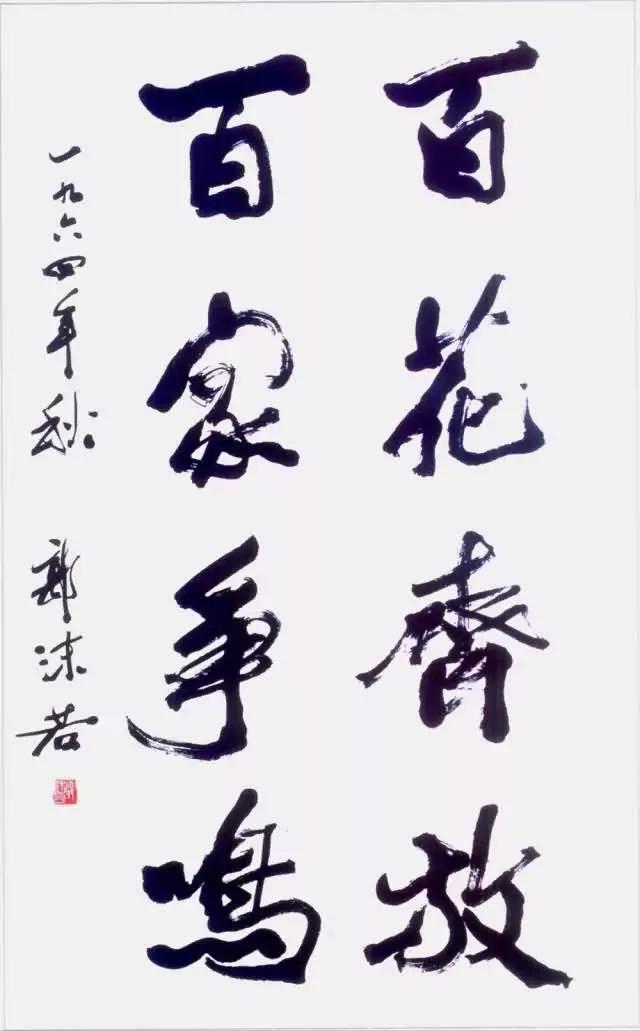 百花齊放
百家争鳴
一九六四年秋
郭沫若